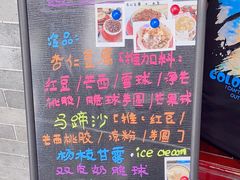 馆品:
杏仁豆腐[推加料:
红豆/芒西/雪球/淨芒
桃胶/脆球芋圆/芒果球
马蹄沙[推:红豆/
芒西桃胶/凉粉/芋圆]
杨枝甘露.ice cream
双皮奶脆球
COLO